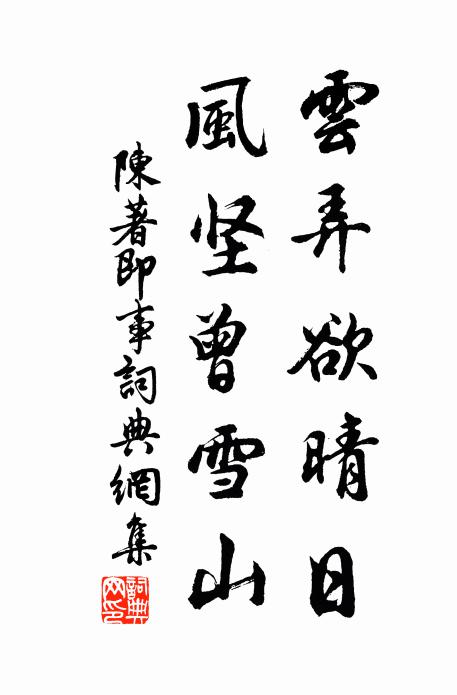 雲弄欲晴日
風坚曾雪山
陳著即事詞典網集
詞典網印